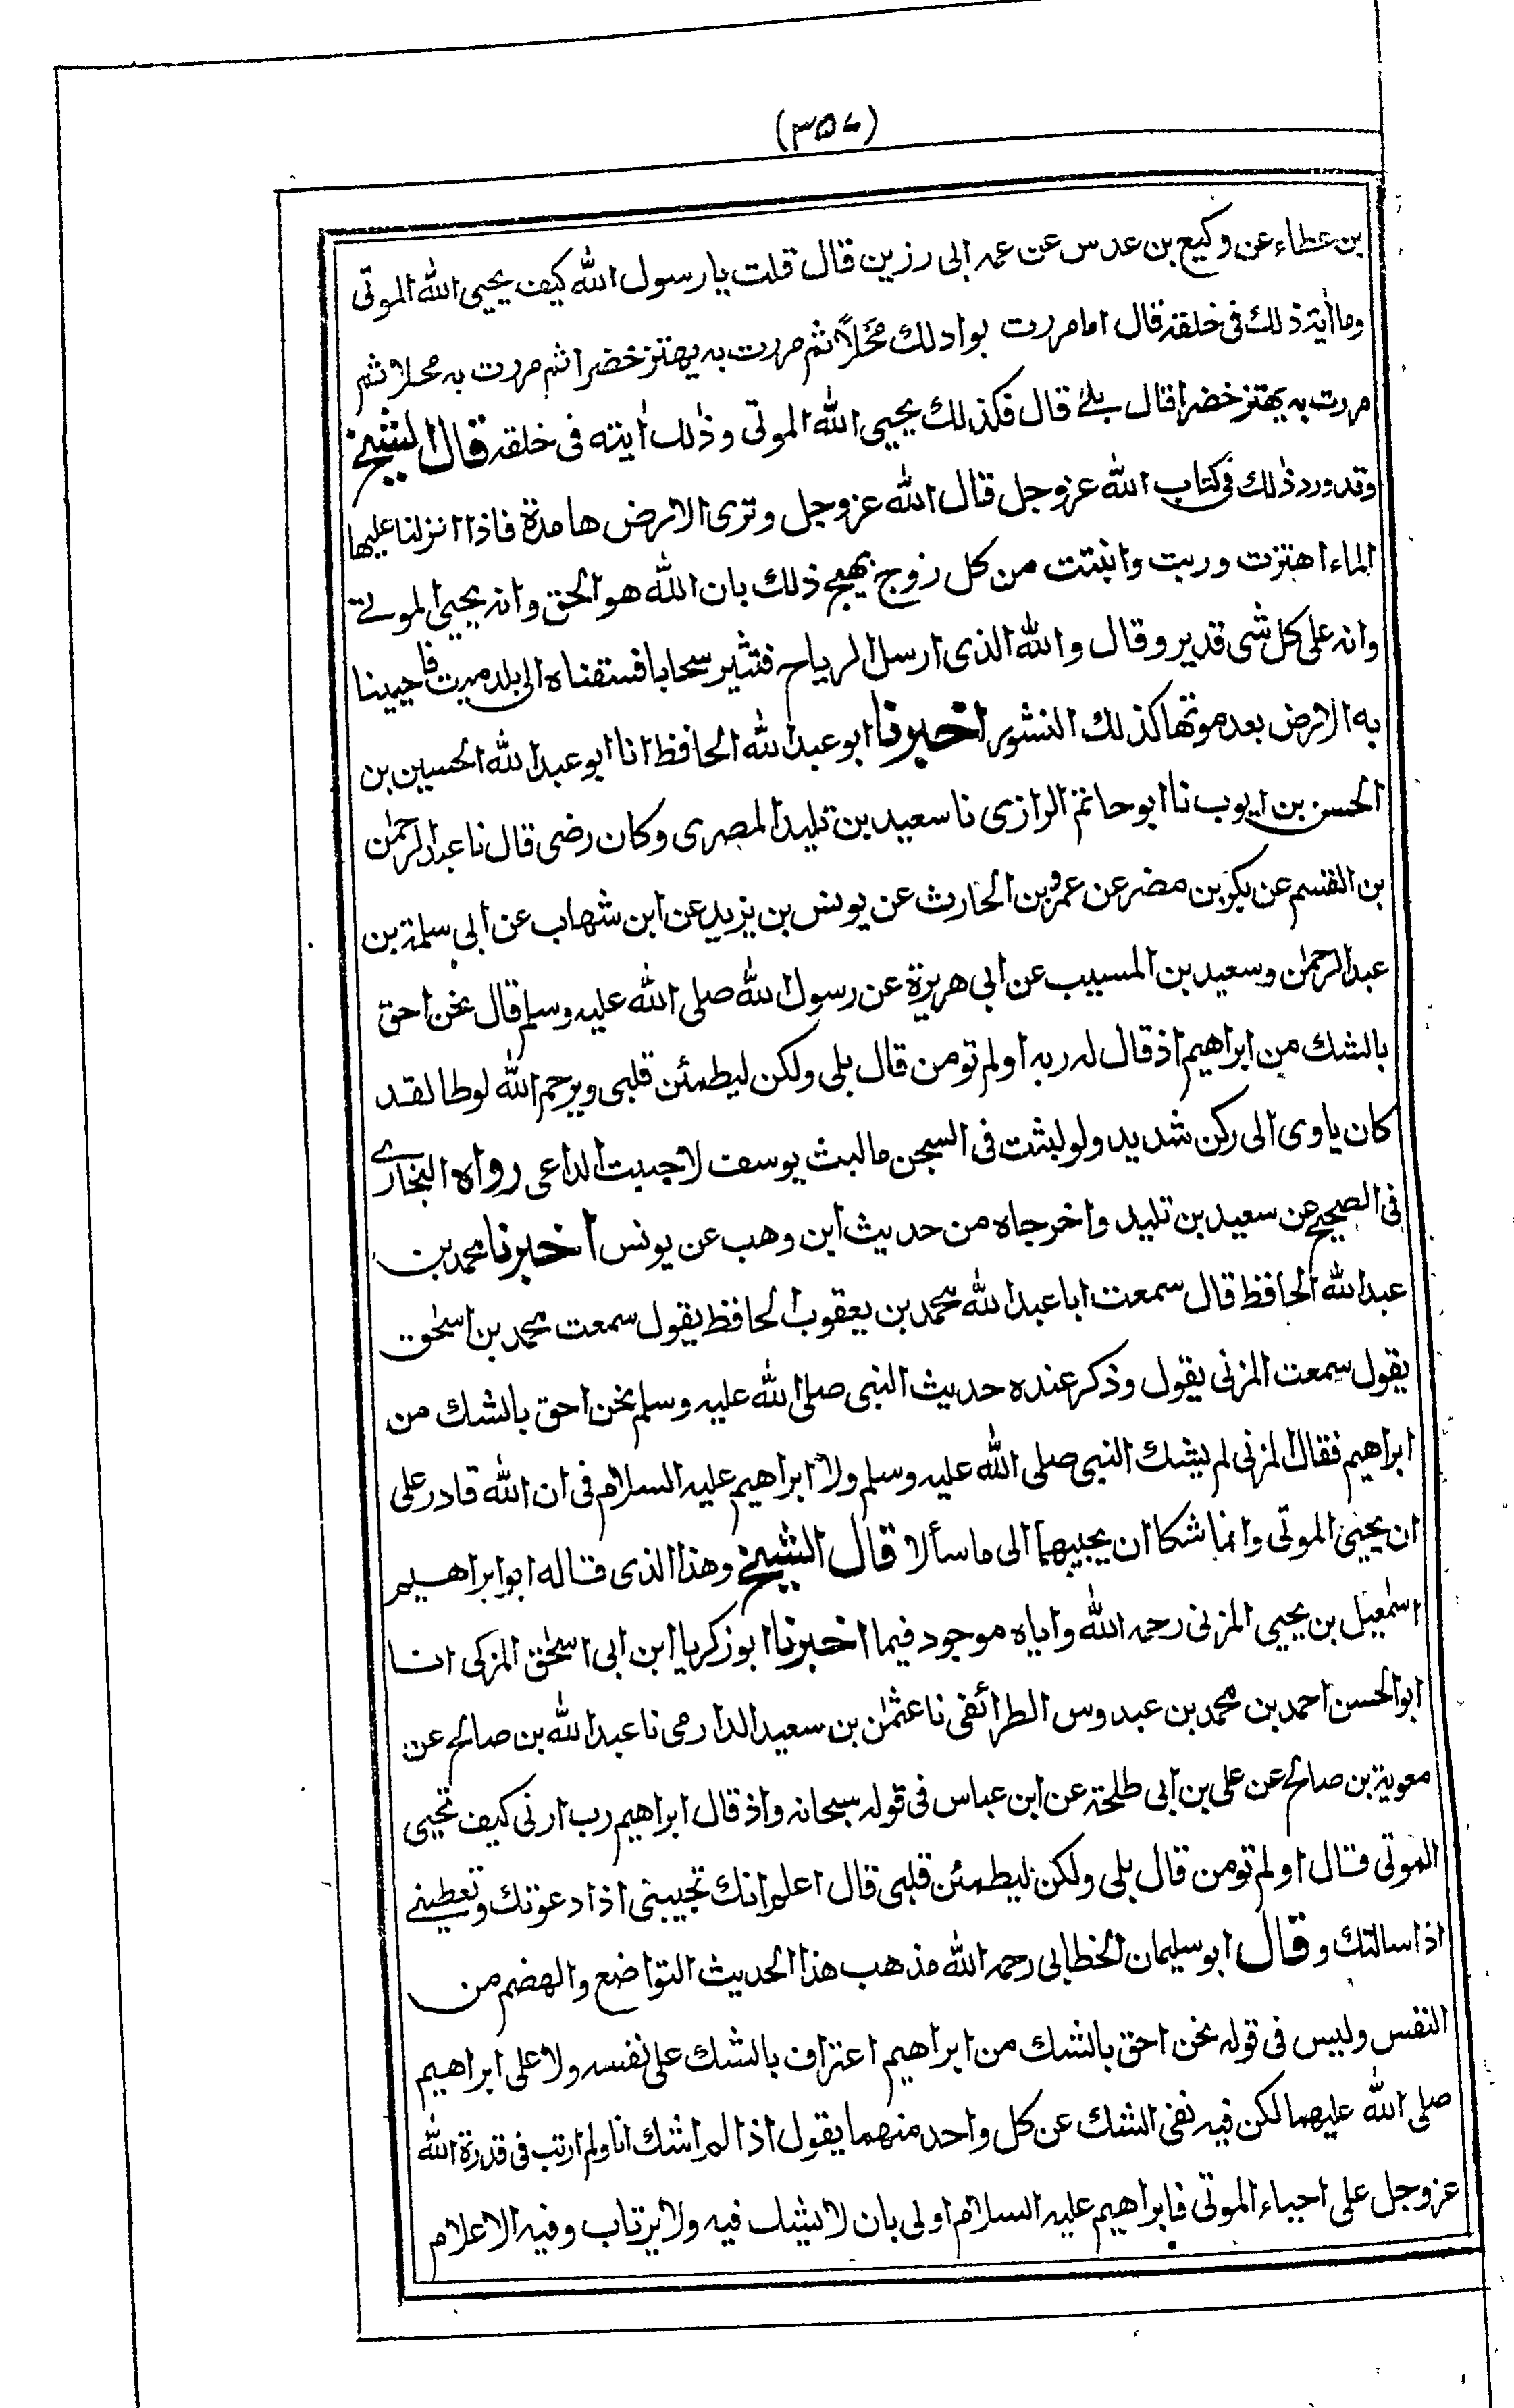 (٣٥٧)
بن عطاء عن وكيع بن عدس عن عمه ابى رزين قال قلت يا رسول الله كيف يحيى الله الموتى
وما أية ذلك فى خلقه قال اما مررت بواد لك مَحْلاً ثم مررت به يهتز خضرا ثم مررت به محلا ثم
مررت به يهتز خضرا قال بلى قال فكذلك يحيى الله الموتى وذلك أيته فى خلقه قال الشيخ
وقد ورد ذلك فى كتاب الله عز وجل قال الله عز وجل وترى الارض هامدة فاذا انزلنا عليها
الماء اهتزت وربت وانبتت من كل زوج بهيج ذلك بان الله هو الحق وانه يحيى الموتى
وانه على كل شى قدير وقال والله الذى ارسل الرياح فتثير سحابا فسقناه الى بلد ميت فاحيينا
به الارض بعد موتها كذلك النشور اخبرنا ابو عبد الله الحافظ انا ابو عبد الله الحسين بن
الحسن بن ايوب نا ابو حاتم الرازى نا سعيد بن تليد المصرى وكان رضى قال نا عبد الرحمٰن
بن القسم عن بكر بن مضر عن عمرو بن الحارث عن يونس بن يزيد عن ابن شهاب عن ابى سلمة بن
عبد الرحمٰن وسعيد بن المسيب عن ابى هريرة عن رسول الله صلى الله عليه وسلم قال نحن احق
بالشك من ابراهيم اذ قال له ربه اولم تومن قال بلى ولكن ليطمئن قلبى ويرحم الله لوطا لقد
كان ياوى الى ركن شديد ولو لبثت فى السجن ما لبث يوسف لاجبت الداعى رواه البخارى
فى الصحيح عن سعيد بن تليد واخرجاه من حديث ابن وهب عن يونس اخبرنا محمد بن
عبد الله الحافظ قال سمعت ابا عبد الله محمد بن يعقوب الحافظ يقول سمعت محمد بن اسحٰق
يقول سمعت المزنى يقول وذكر عنده حديث النبى صلى الله عليه وسلم نحن احق بالشك من
ابراهيم فقال المزنى لم يشك النبى صلى الله عليه وسلم ولا ابراهيم عليه السلام فى ان الله قادر على
ان يحيى الموتى وانما شكا ان يجيبهما الى ما سألا قال الشيخ وهذا الذى قاله ابو ابراهيم
اسمٰعيل بن يحيى المزنى رحمه الله واياه موجود فيما اخبرنا ابو زكريا ابن ابى اسحٰق المزكى انا
ابو الحسن احمد بن محمد بن عبدوس الطرائفى نا عثمٰن بن سعيد الدارمى نا عبد الله بن صالح عن
معوية بن صالح عن على بن ابى طلحة عن ابن عباس فى قوله سبحانه واذ قال ابراهيم رب ارنى كيف تحيى
الموتى قال اولم تومن قال بلى ولكن ليطمئن قلبى قال اعلم انك تجيبنى اذا دعوتك وتعطينى
اذا سالتك وقال ابو سليمان الخطابى رحمه الله مذهب هذا الحديث التواضع والهضم من
النفس وليس فى قوله نحن احق بالشك من ابراهيم اعتراف بالشك على نفسه ولا على ابراهيم
صلى الله عليهما لكن فيه نفى الشك عن كل واحد منهما يقول اذا لم اشك انا ولم ارتب فى قدرة الله
عز وجل على احياء الموتى فابراهيم عليه السلام اولى بان لا يشك فيه ولا يرتاب وفيه الاعلام